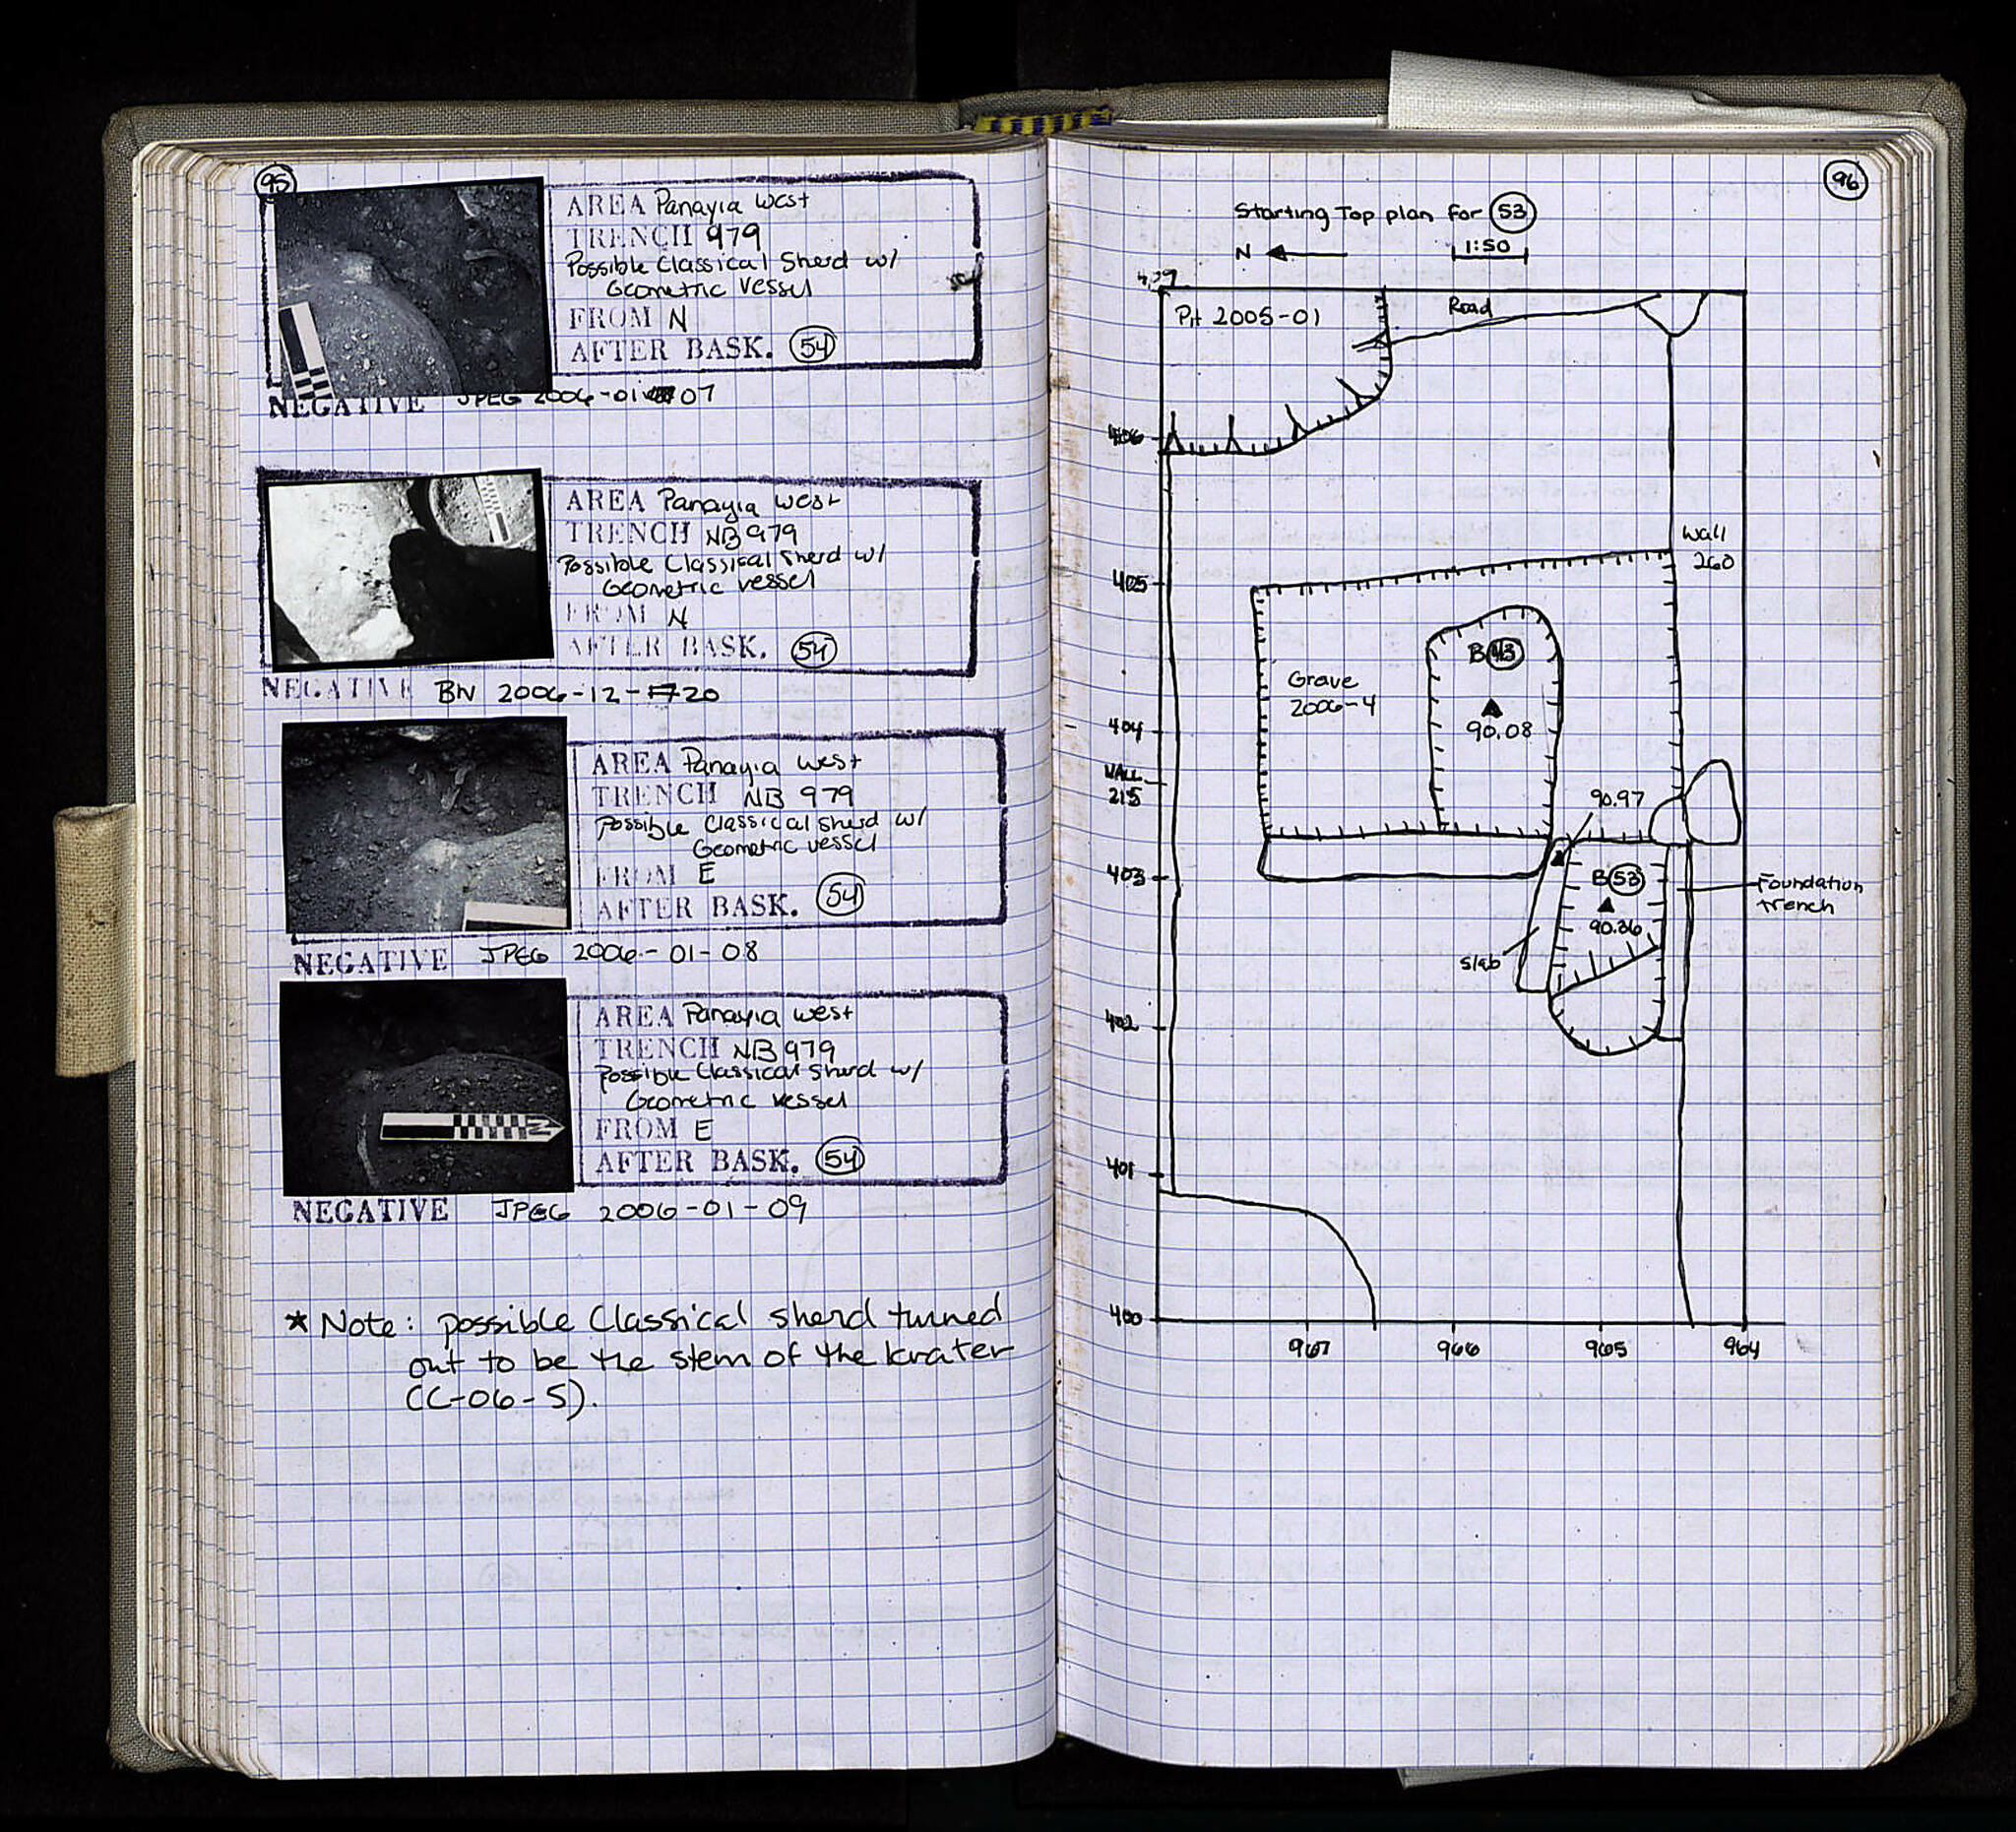 95
AREA Panayia West
TRENCH 979
Possible Classical Sherd w/
Geometric Vessel
FROM N
AFTER BASK. 54
NEGATIVE JPEG 2006-01-07
AREA Panayia West
TRENCH NB 979
Possible Classical Sherd w/
Geometric vessel
FROM N
AFTER BASK. 54
NEGATIVE BW 2006-12-20
AREA Panayia West
TRENCH NB 979
Possible Classical Sherd w/
Geometric vessel
FROM E
AFTER BASK. 54
NEGATIVE JPEG 2006-01-08
AREA Panayia West
TRENCH NB 979
Possible Classical Sherd w/
Geometric Vessel
FROM E
AFTER BASK. 54
NEGATIVE JPEG 2006-01-09
* Note: possible Classical sherd turned
out to be the stem of the krater
(C-06-5).
96
Starting Top plan for 53
N
1:50
Pit 2005-01
Road
406
Wall
260
405
B 43
Grave
2006-4
90.08
404
WALL
215
90.97
403
B 53
Foundation
trench
90.36
Slab
402
401
400
967
966
965
964